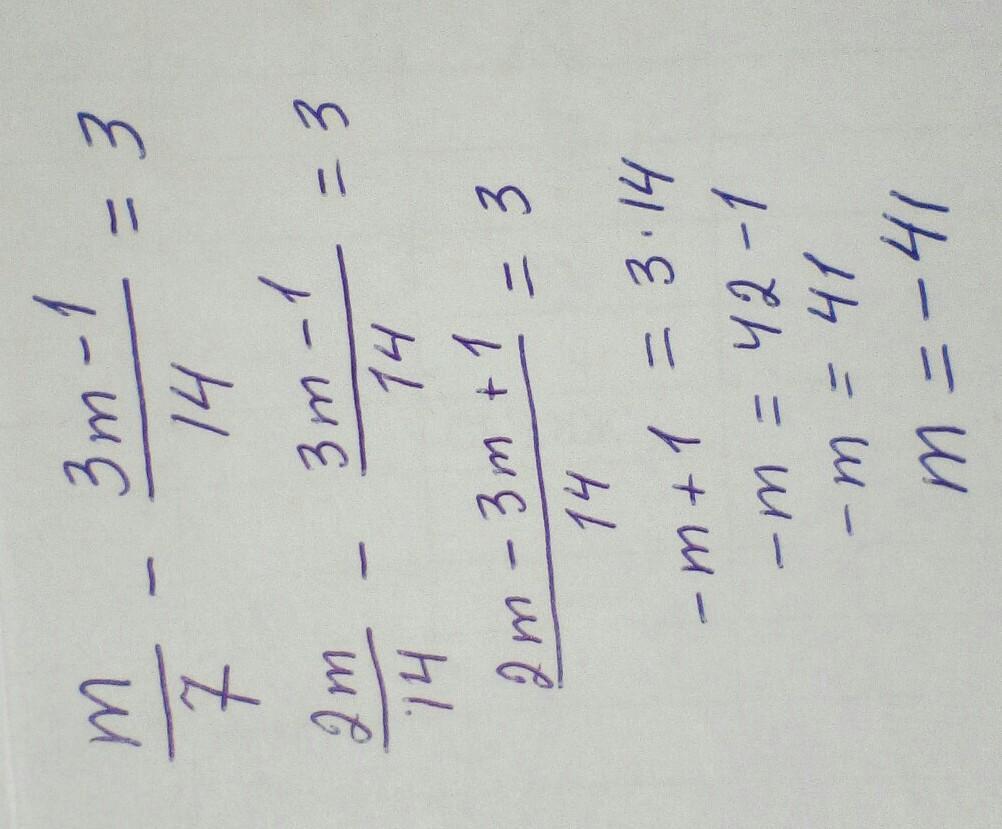 m/7 - (3m-1)/14 = 3
2m/14 - (3m-1)/14 = 3
(2m-3m+1)/14 = 3
-m+1 = 3·14
-m = 42-1
-m = 41
m = -41